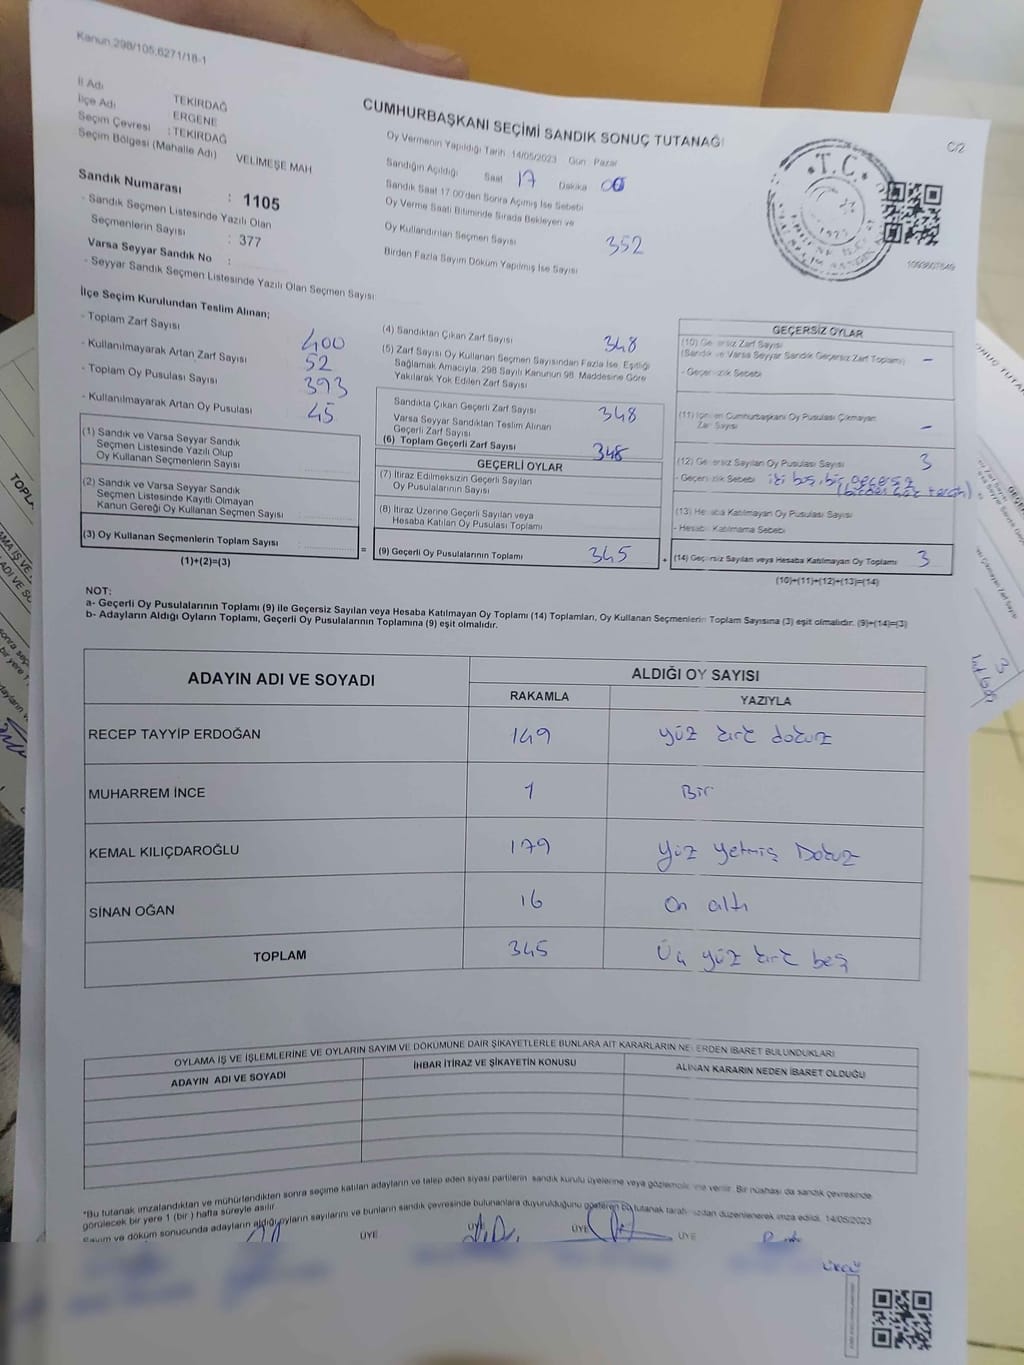 Kanun:298/105;6271/18-1
İl Adı TEKİRDAĞ
İlçe Adı ERGENE
Seçim Çevresi : TEKİRDAĞ
Seçim Bölgesi (Mahalle Adı) VELİMEŞE MAH
Sandık Numarası : 1105
- Sandık Seçmen Listesinde Yazılı Olan
Seçmenlerin Sayısı : 377
Varsa Seyyar Sandık No :
- Seyyar Sandık Seçmen Listesinde Yazılı Olan Seçmen Sayısı
CUMHURBAŞKANI SEÇİMİ SANDIK SONUÇ TUTANAĞI
C/2
Oy Vermenin Yapıldığı Tarih 14/05/2023 Gün Pazar
Sandığın Açıldığı Saat 17 Dakika 00
Sandık Saat 17.00'den Sonra Açmış İse Sebebi
Oy Verme Saati Bitiminde Sırada Bekleyen ve
Oy Kullandırılan Seçmen Sayısı 352
Birden Fazla Sayım Döküm Yapılmış İse Sayısı
T.C.
1093607849
İlçe Seçim Kurulundan Teslim Alınan;
- Toplam Zarf Sayısı 400
- Kullanılmayarak Artan Zarf Sayısı 52
- Toplam Oy Pusulası Sayısı 393
- Kullanılmayarak Artan Oy Pusulası 45
(1) Sandık ve Varsa Seyyar Sandık
Seçmen Listesinde Yazılı Olup
Oy Kullanan Seçmenlerin Sayısı
(2) Sandık ve Varsa Seyyar Sandık
Seçmen Listesinde Kayıtlı Olmayan
Kanun Gereği Oy Kullanan Seçmen Sayısı
(3) Oy Kullanan Seçmenlerin Toplam Sayısı
(1)+(2)=(3)
(4) Sandıktan Çıkan Zarf Sayısı 348
(5) Zarf Sayısı Oy Kullanan Seçmen Sayısından Fazla İse, Eşitliği
Sağlamak Amacıyla, 298 Sayılı Kanunun 98. Maddesine Göre
Yakılarak Yok Edilen Zarf Sayısı
Sandıkta Çıkan Geçerli Zarf Sayısı 348
Varsa Seyyar Sandıktan Teslim Alınan
Geçerli Zarf Sayısı
(6) Toplam Geçerli Zarf Sayısı 348
GEÇERLİ OYLAR
(7) İtiraz Edilmeksizin Geçerli Sayılan
Oy Pusulalarının Sayısı
(8) İtiraz Üzerine Geçerli Sayılan veya
Hesaba Katılan Oy Pusulası Toplamı
= (9) Geçerli Oy Pusulalarının Toplamı 345
GEÇERSİZ OYLAR
(10) Geçersiz Zarf Sayısı
(Sandık ve Varsa Seyyar Sandık Geçersiz Zarf Toplamı) -
- Geçersizlik Sebebi
(11) İçinden Cumhurbaşkanı Oy Pusulası Çıkmayan
Zarf Sayısı -
(12) Geçersiz Sayılan Oy Pusulası Sayısı 3
- Geçersizlik Sebebi iki boş, bir geçersiz
(13) Hesaba Katılmayan Oy Pusulası Sayısı
- Hesaba Katılmama Sebebi
+ (14) Geçersiz Sayılan veya Hesaba Katılmayan Oy Toplamı 3
(10)+(11)+(12)+(13)=(14)
NOT:
a- Geçerli Oy Pusulalarının Toplamı (9) ile Geçersiz Sayılan veya Hesaba Katılmayan Oy Toplamı (14) Toplamları, Oy Kullanan Seçmenlerin Toplam Sayısına (3) eşit olmalıdır. (9)+(14)=(3)
b- Adayların Aldığı Oyların Toplamı, Geçerli Oy Pusulalarının Toplamına (9) eşit olmalıdır.
ADAYIN ADI VE SOYADI
ALDIĞI OY SAYISI
RAKAMLA YAZIYLA
RECEP TAYYİP ERDOĞAN 149 yüz kırk dokuz
MUHARREM İNCE 1 Bir
KEMAL KILIÇDAROĞLU 179 yüz yetmiş Dokuz
SİNAN OĞAN 16 On altı
TOPLAM 345 Üç yüz kırk beş
OYLAMA İŞ VE İŞLEMLERİNE VE OYLARIN SAYIM VE DÖKÜMÜNE DAİR ŞİKAYETLERLE BUNLARA AİT KARARLARIN NELERDEN İBARET BULUNDUKLARI
ADAYIN ADI VE SOYADI
İHBAR İTİRAZ VE ŞİKAYETİN KONUSU
ALINAN KARARIN NEDEN İBARET OLDUĞU
*Bu tutanak imzalandıktan ve mühürlendikten sonra seçime katılan adayların ve talep eden siyasi partilerin sandık kurulu üyelerine veya gözlemcilerine verilir. Bir nüshası da sandık çevresinde
görülecek bir yere 1 (bir) hafta süreyle asılır.
Sayım ve döküm sonucunda adayların aldığı oyların sayılarını ve bunların sandık çevresinde bulunanlara duyurulduğunu gösteren bu tutanak tarafımızdan düzenlenerek imza edildi. 14/05/2023
ÜYE ÜYE ÜYE ÜYE